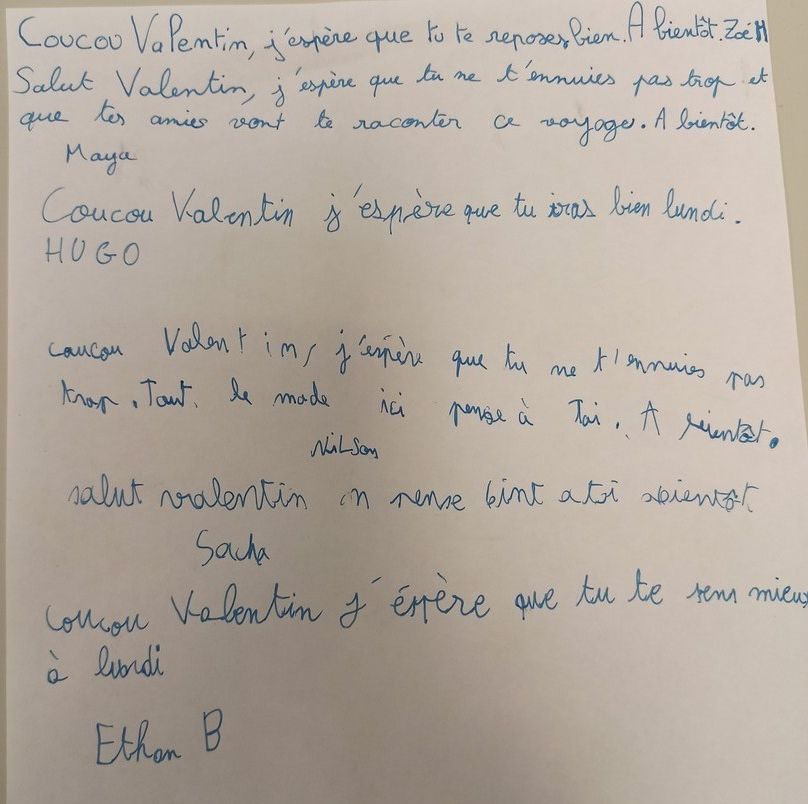 Coucou Valentin, j'espère que tu te reposes bien. A bientôt. Zoé M
Salut Valentin, j'espère que tu ne t'ennuies pas trop et
que tes amies vont te raconter ce voyage. A bientôt.
Maya
Coucou Valentin j'espère que tu iras bien lundi.
HUGO
coucou Valentin, j'espère que tu ne t'ennuies pas
trop. Tout le mode ici pense à Toi. A bientôt.
NilSon
salut valentin on pense bint a toi abientôt
Sacha
Coucou Valentin j'éspère que tu te sens mieux
à lundi
Ethan B